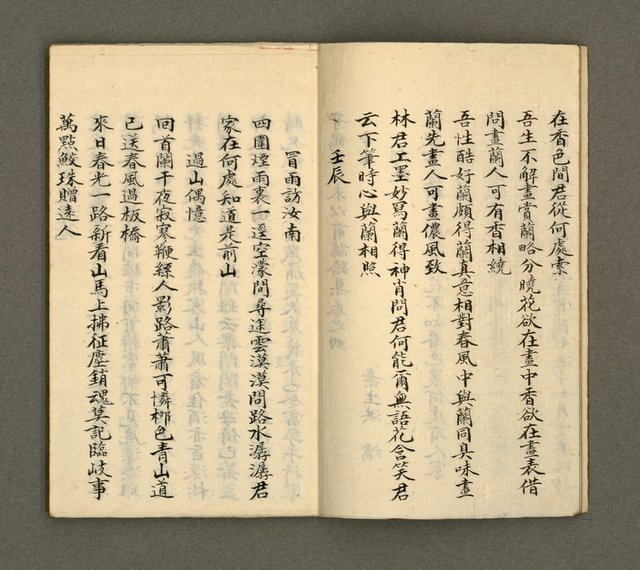 在香色間君從何處素
吾生不解畫賞蘭略分曉花欲在畫中香欲在畫表借
問畫蘭人可有香相繞
吾性酷好蘭頗得蘭真意相對春風中與蘭同臭味畫
蘭先畫人可畫儂風致
林君工墨妙寫蘭得神肖問君何能爾無語花含笑君
云下筆時心與蘭相照
壬辰
冒雨訪汝南
四圍煙雨裏一逕空濛間尋途雲漠漠問路水潺潺君
家在何處知道是前山
過山偶憶
回首蘭干夜寂寒鞭絲人影路蕭蕭可憐柳色青山道
已送春風過板橋
來日春光一路新看山馬上拂征塵銷魂莫記臨岐事
萬點鮫珠贈遠人